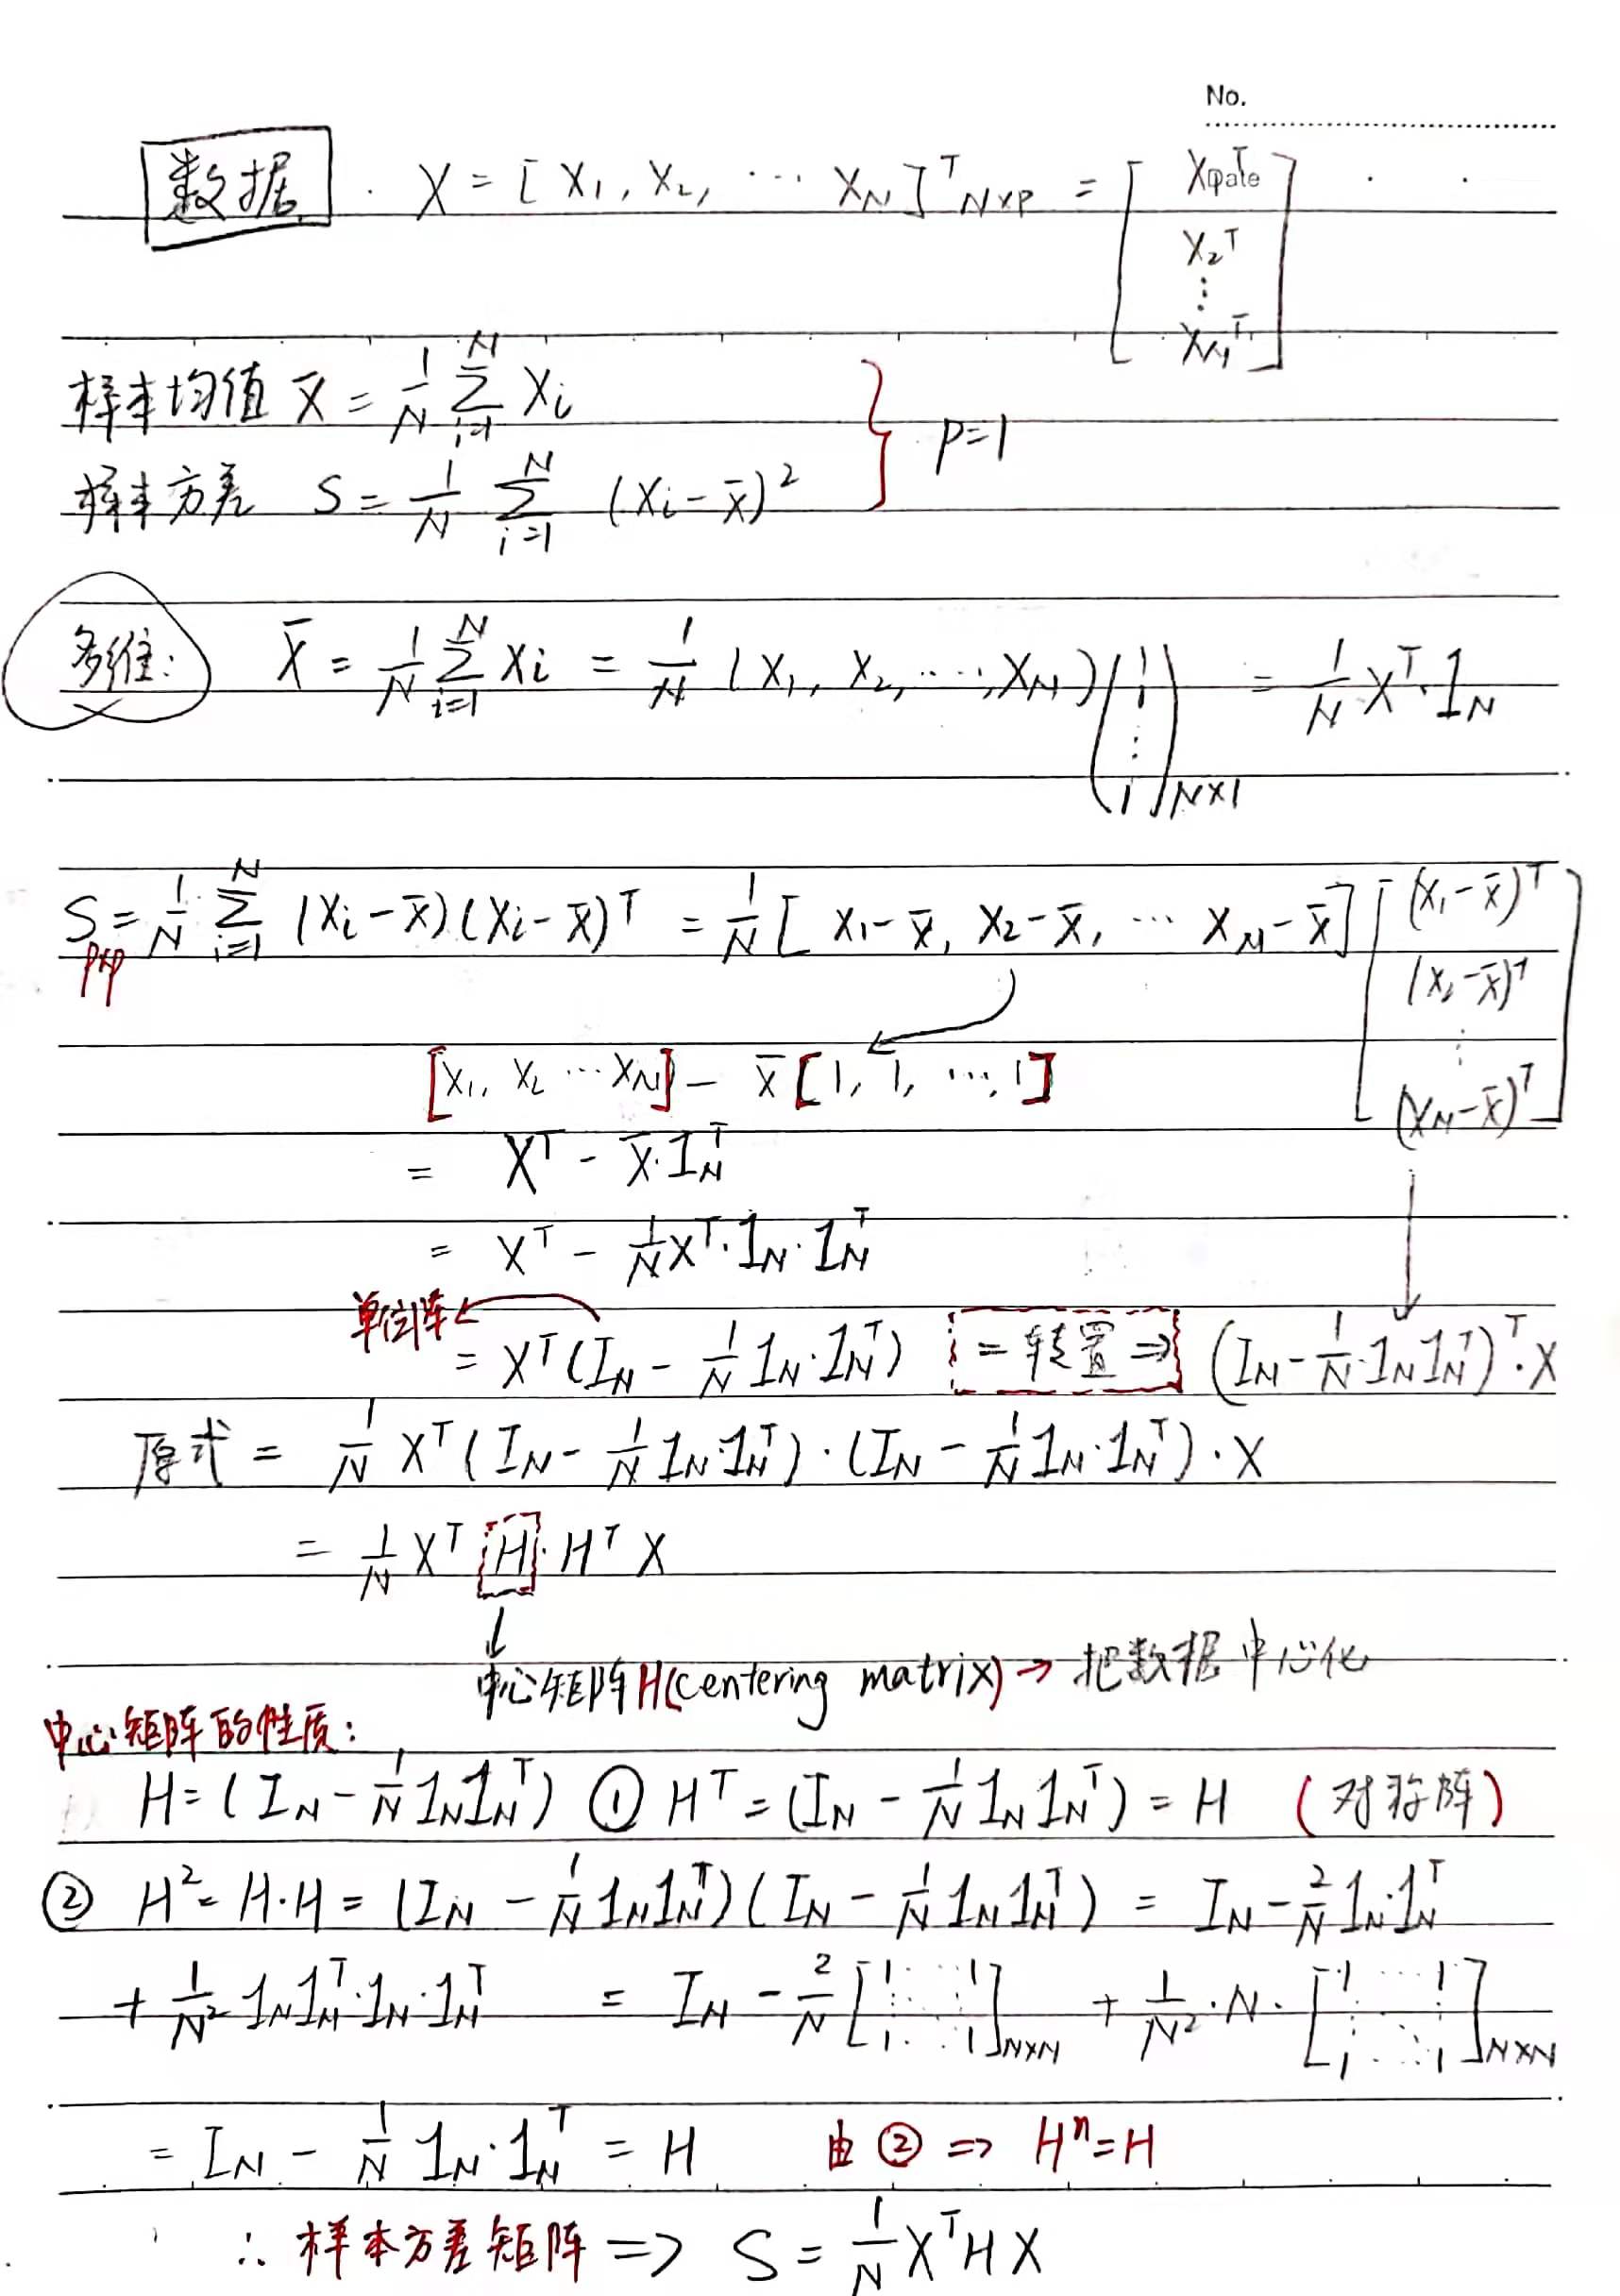 No.
数据 . X = [ x₁, x₂, ⋯ x_N ]ᵀ_{N×P} = [ x₁ᵀ Date
x₂ᵀ
⋮
x_Nᵀ ]
样本均值 x̄ = 1/N ∑_{i=1}^{N} xᵢ
样本方差 S = 1/N ∑_{i=1}^{N} (xᵢ - x̄)² } P=1
多维: X̄ = 1/N ∑_{i=1}^{N} xᵢ = 1/N (x₁, x₂, ⋯, x_N) (1 1 ⋮ 1)_{N×1} = 1/N Xᵀ·1_N
S_{p×p} = 1/N ∑_{i=1}^{N} (xᵢ - x̄)(xᵢ - x̄)ᵀ = 1/N [ x₁ - x̄, x₂ - x̄, ⋯ x_N - x̄ ] [ (x₁ - x̄)ᵀ
(x₂ - x̄)ᵀ
⋮
(x_N - x̄)ᵀ ]
[x₁, x₂ ⋯ x_N] - x̄ [1, 1, ⋯, 1]
= Xᵀ - x̄·1_Nᵀ
= Xᵀ - 1/N Xᵀ·1_N·1_Nᵀ
单位阵 ←
= Xᵀ(I_N - 1/N 1_N·1_Nᵀ) = 转置 ⇒ (I_N - 1/N·1_N 1_Nᵀ)ᵀ·X
原式 = 1/N Xᵀ(I_N - 1/N 1_N·1_Nᵀ)·(I_N - 1/N 1_N·1_Nᵀ)·X
= 1/N Xᵀ H·Hᵀ X
↓
中心矩阵H(centering matrix) → 把数据中心化
中心矩阵的性质:
H = (I_N - 1/N 1_N 1_Nᵀ) ① Hᵀ = (I_N - 1/N 1_N 1_Nᵀ) = H (对称阵)
② H² = H·H = (I_N - 1/N 1_N 1_Nᵀ)(I_N - 1/N 1_N 1_Nᵀ) = I_N - 2/N 1_N·1_Nᵀ
+ 1/N² 1_N 1_Nᵀ·1_N·1_Nᵀ = I_N - 2/N [1 ⋯ 1 ⋮ ⋮ 1 ⋯ 1]_{N×N} + 1/N²·N·[1 ⋯ 1 ⋮ ⋮ 1 ⋯ 1]_{N×N}
= I_N - 1/N 1_N·1_Nᵀ = H 由 ② ⇒ Hⁿ = H
∴ 样本方差矩阵 ⇒ S = 1/N Xᵀ H X